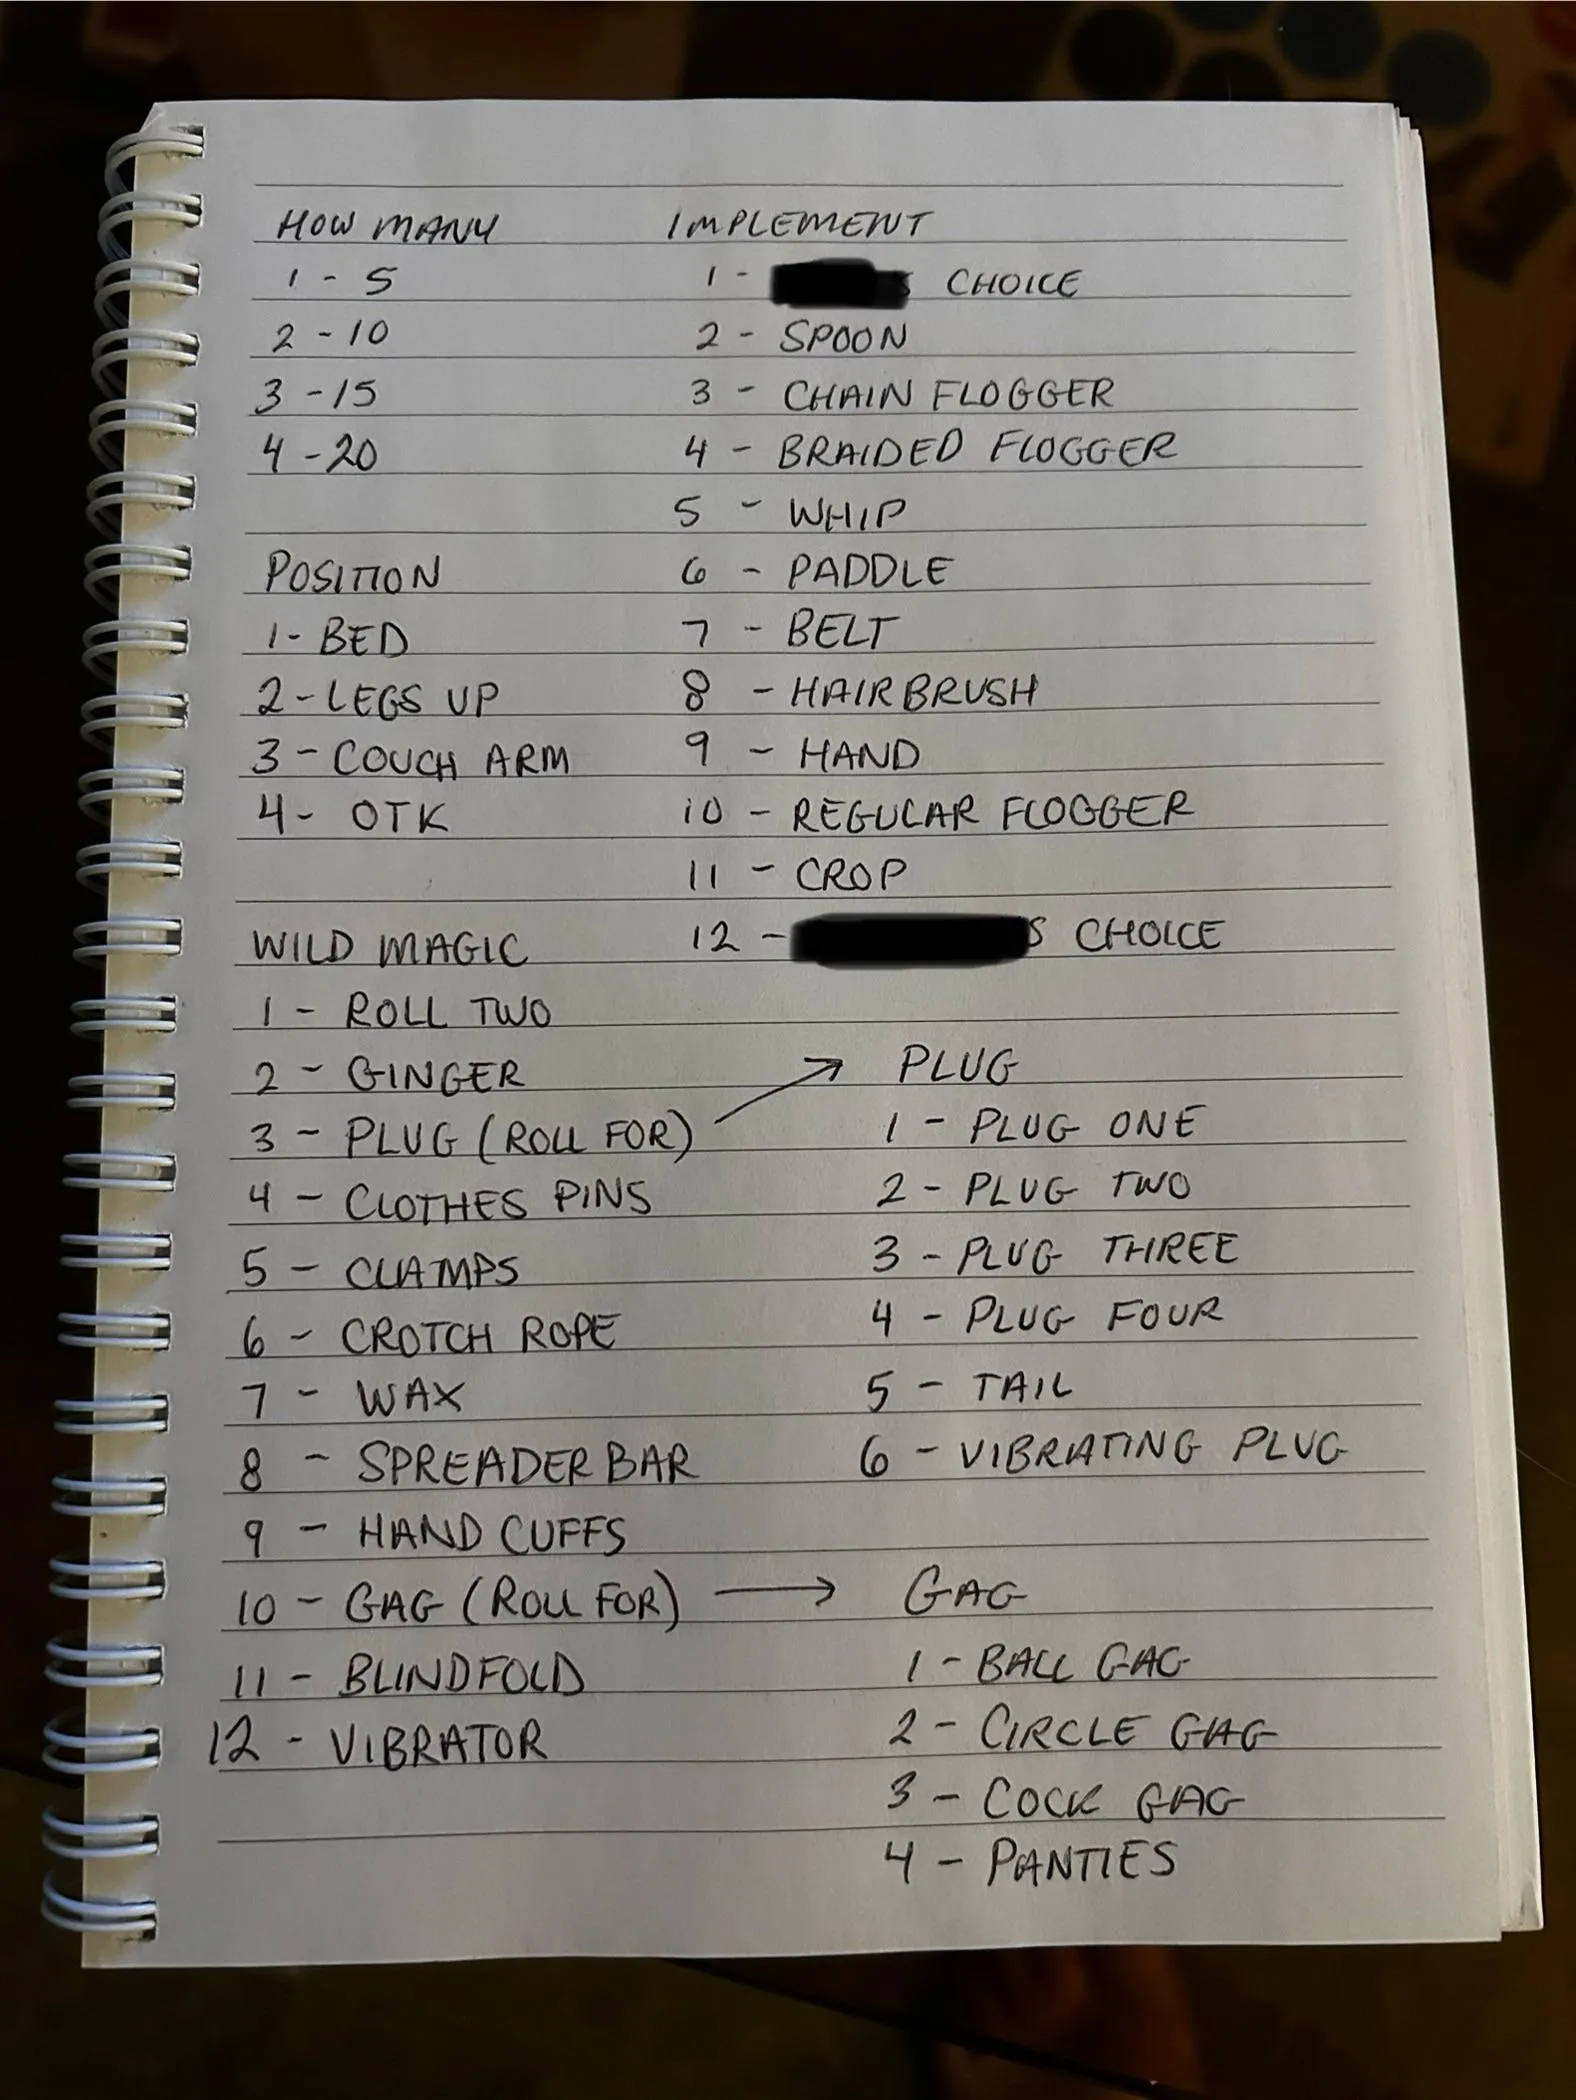 HOW MANY
1 - 5
2 - 10
3 - 15
4 - 20
POSITION
1 - BED
2 - LEGS UP
3 - COUCH ARM
4 - OTK
IMPLEMENT
1 - S CHOICE
2 - SPOON
3 - CHAIN FLOGGER
4 - BRAIDED FLOGGER
5 - WHIP
6 - PADDLE
7 - BELT
8 - HAIRBRUSH
9 - HAND
10 - REGULAR FLOGGER
11 - CROP
12 - S CHOICE
WILD MAGIC
1 - ROLL TWO
2 - GINGER
3 - PLUG (ROLL FOR) →
4 - CLOTHES PINS
5 - CLAMPS
6 - CROTCH ROPE
7 - WAX
8 - SPREADER BAR
9 - HAND CUFFS
10 - GAG (ROLL FOR) →
11 - BLINDFOLD
12 - VIBRATOR
PLUG
1 - PLUG ONE
2 - PLUG TWO
3 - PLUG THREE
4 - PLUG FOUR
5 - TAIL
6 - VIBRATING PLUG
GAG
1 - BALL GAG
2 - CIRCLE GAG
3 - COCK GAG
4 - PANTIES